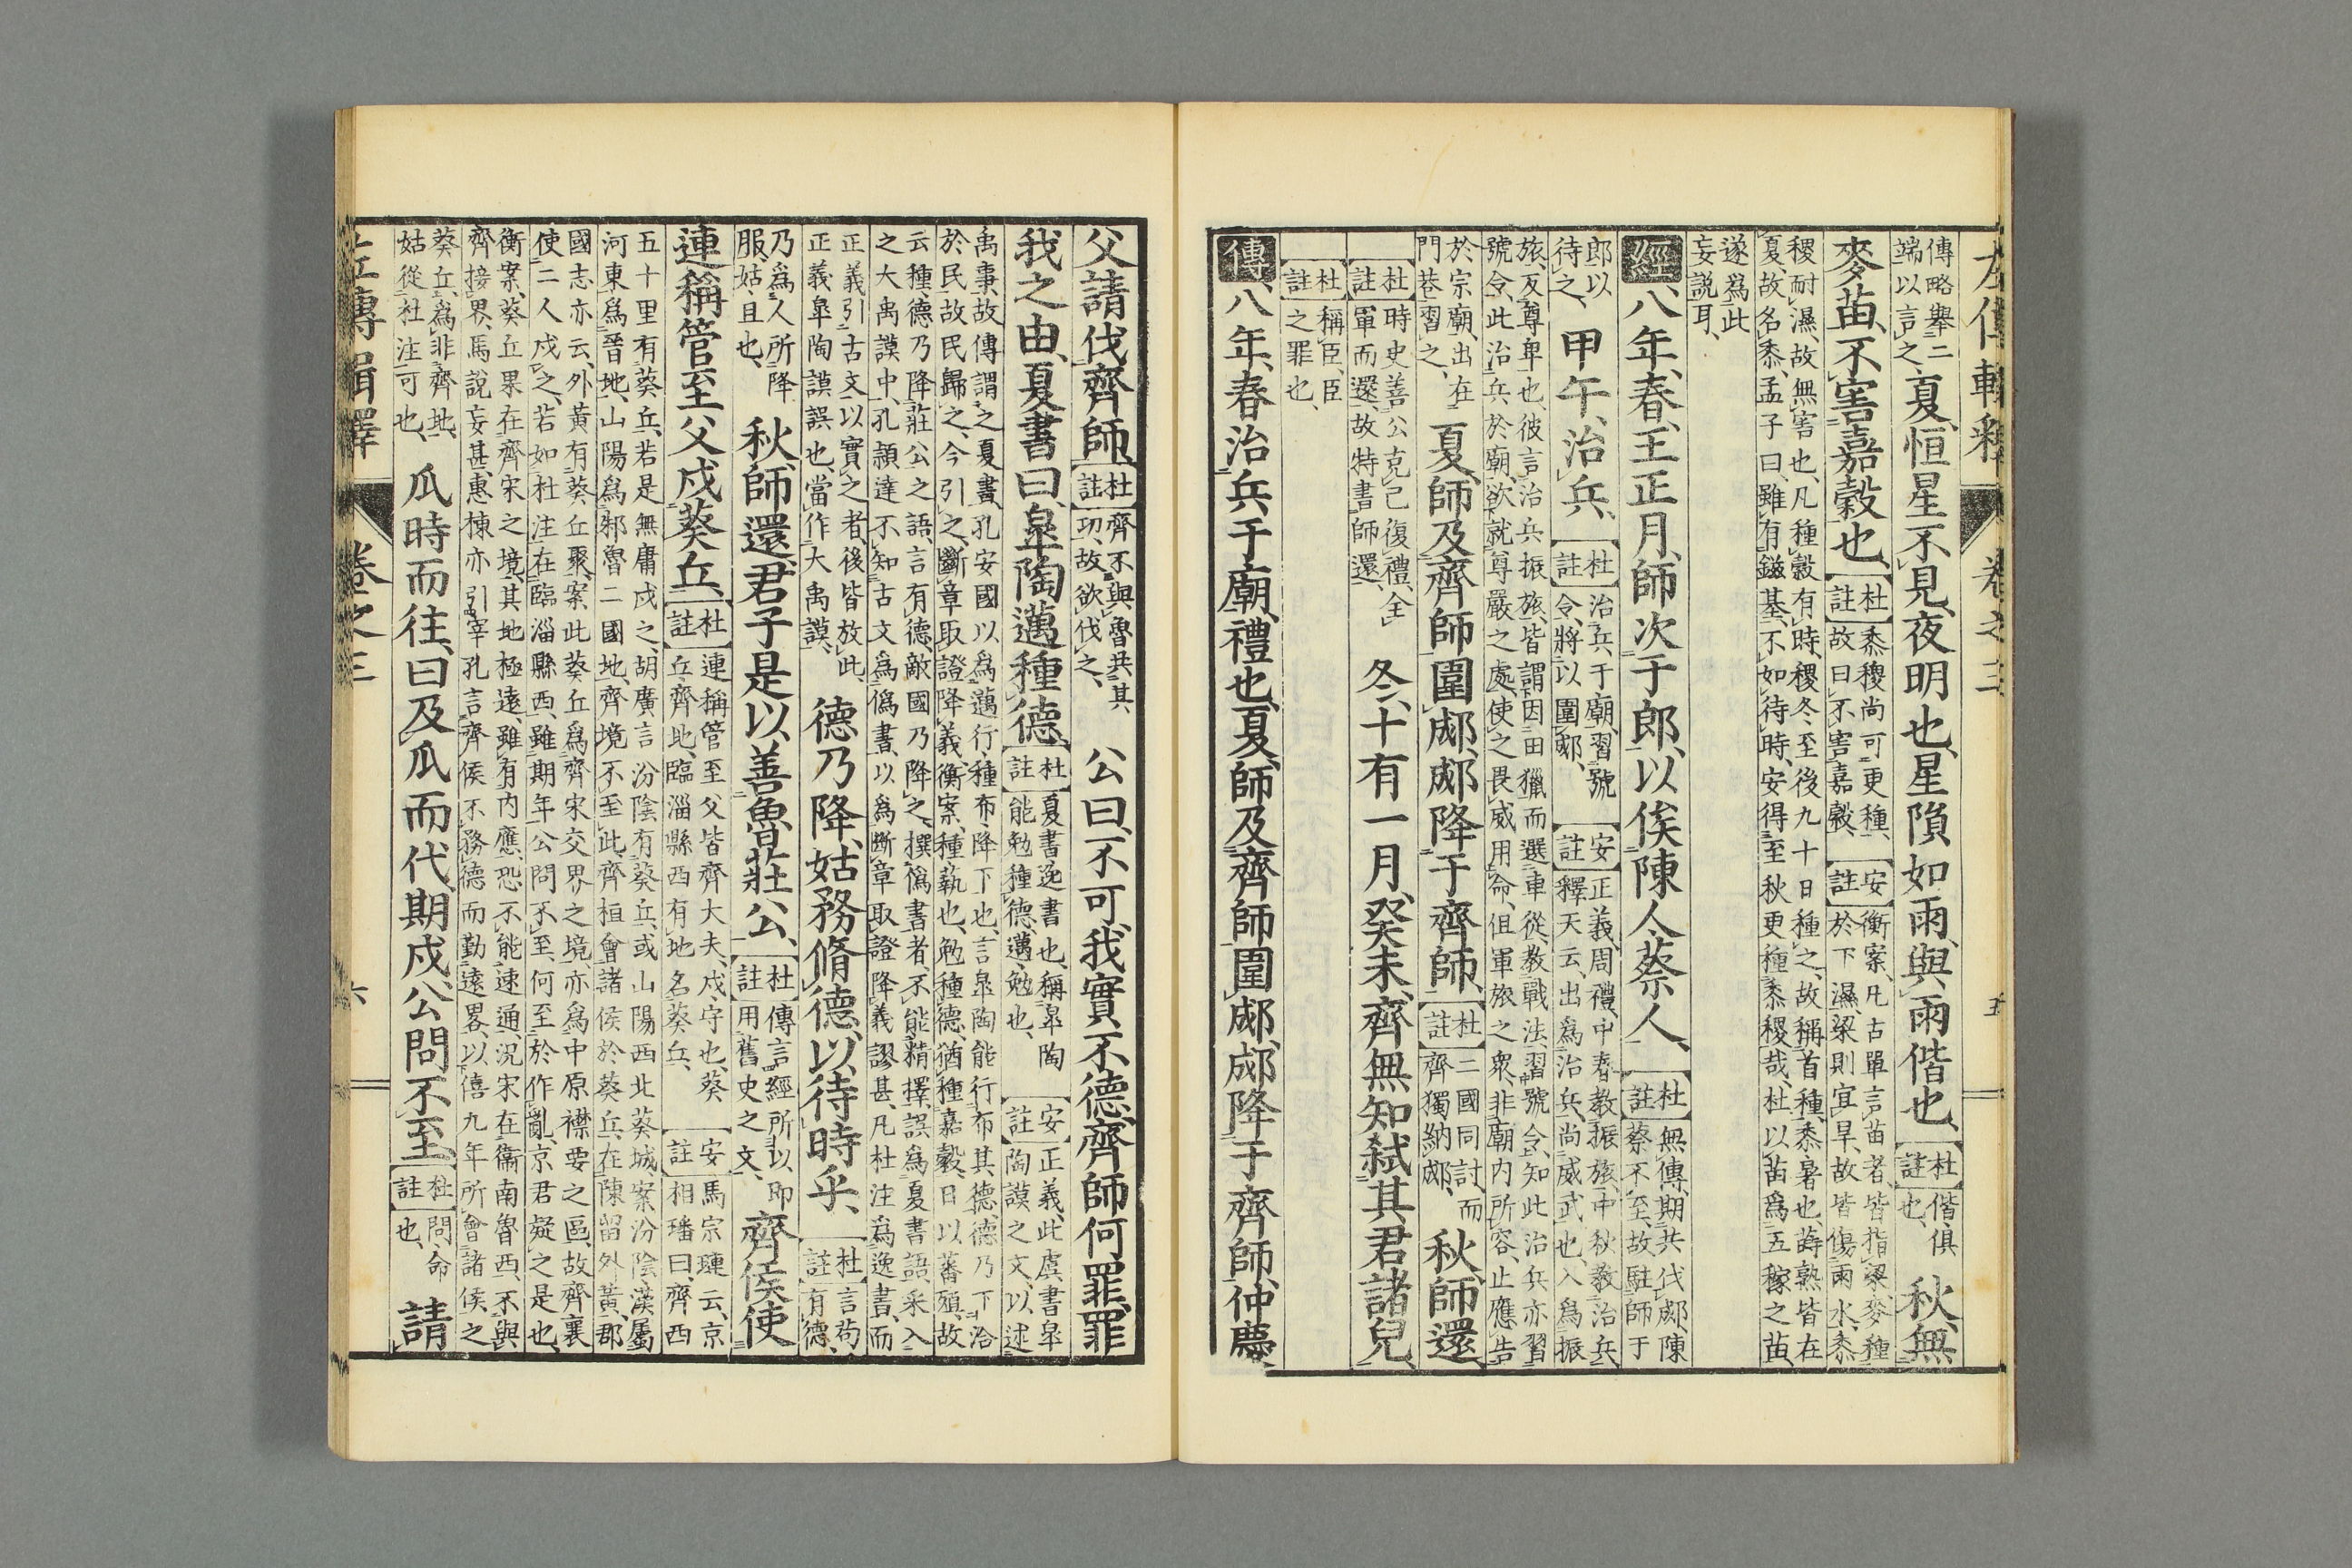 左傳輯釋 卷之三 五
傳略舉二
端以言之、夏、恒星不見、夜明也、星隕如雨、與雨偕也、杜註偕俱
也、秋、無
麥苗、不害嘉穀也、杜註黍稷尚可更種、
故曰不害嘉穀、安註衡案、凡古單言苗者、皆指粱、麥種
於下濕、粱則宜旱、故皆傷雨水、黍
稷耐濕、故無害也、凡種穀有時、稷冬至後九十日種之、故稱首種、黍暑也、蒔熟皆在
夏、故名黍、孟子曰、雖有鎡基、不如待時、安得至秋更種黍稷哉、杜以苗爲五稼之苗、
遂爲此
妄說耳、
經八年、春、王正月、師次于郎、以俟陳人蔡人、杜註無傳、期共伐郕、陳
蔡不至、故駐師于
郎以
待之、甲午、治兵、杜註治兵于廟、習號
令、將以圍郕、安註正義、周禮、中春教振旅、中秋教治兵、
釋天云、出爲治兵、尚威武也、入爲振
旅、反尊卑也、彼言治兵振旅、皆謂因田獵而選車從、教戰法、習號令、知此治兵亦習
號令、此治兵於廟、欲就尊嚴之處、使之畏威用命、但軍旅之衆、非廟內所容、止應告
於宗廟、出在
門巷習之、夏、師及齊師圍郕、郕降于齊師、杜註二國同討、而
齊獨納郕、秋、師還、
杜註時史善公克己復禮、全
軍而還、故特書師還、冬、十有一月、癸未、齊無知弒其君諸兒、
杜註稱臣、臣
之罪也、
傳八年、春、治兵于廟、禮也、夏、師及齊師圍郕、郕降于齊師、仲慶
父請伐齊師、杜註齊不與魯共其
功、故欲伐之、公曰、不可、我實不德、齊師何罪、罪
我之由、夏書曰、皐陶邁種德、杜註夏書逸書也、稱皐陶
能勉種德、邁、勉也、安註正義、此虞書皐
陶謨之文、以述
禹事、故傳謂之夏書、孔安國以爲邁行、種布、降下也、言皐陶能行布其德、德乃下洽
於民、故民歸之、今引之、斷章取證降義、衡案、種蓺也、勉種德、猶種嘉穀、日以蕃殖、故
云種、德乃降、莊公之語、言有德、敵國乃降之、撰僞書者、不能精擇、誤爲夏書語、采入
之大禹謨中、孔穎達不知古文爲僞書、以爲斷章取證降義、謬甚、凡杜注爲逸書、而
正義引古文以實之者、後皆放此、
正義皐陶謨誤也、當作大禹謨、德乃降、姑務脩德、以待時乎、杜註言苟
有德、
乃爲人所降
服、姑、且也、秋、師還、君子是以善魯莊公、杜註傳言經所以即
用舊史之文、齊侯使
連稱管至父戍葵丘、杜註連稱管至父皆齊大夫、戍、守也、葵
丘、齊地、臨淄縣西有地名葵丘、安註馬宗璉云、京
相璠曰、齊西
五十里有葵丘、若是無庸戍之、胡廣言汾陰有葵丘、或山陽西北葵城、案汾陰漢屬
河東、爲晉地、山陽爲邾魯二國地、齊境不至此、齊桓會諸侯於葵丘、在陳留外黃、郡
國志亦云、外黃有葵丘聚、案此葵丘爲齊宋交界之境、亦爲中原襟要之區、故齊襄
使二人戍之、若如杜注在臨淄縣西、雖期年公問不至、何至於作亂、京君疑之是也、
衡案、葵丘果在齊宋之境、其地極遠、雖有內應、恐不能速通、況宋在衞南魯西、不與
齊接界、馬說妄甚、惠棟亦引宰孔言齊侯不務德而勤遠畧、以僖九年所會諸侯之
葵丘、爲非齊地、
姑從杜注可也、瓜時而往、曰、及瓜而代、期戍、公問不至、杜註問、命
也、請
左傳輯釋 卷之三 六